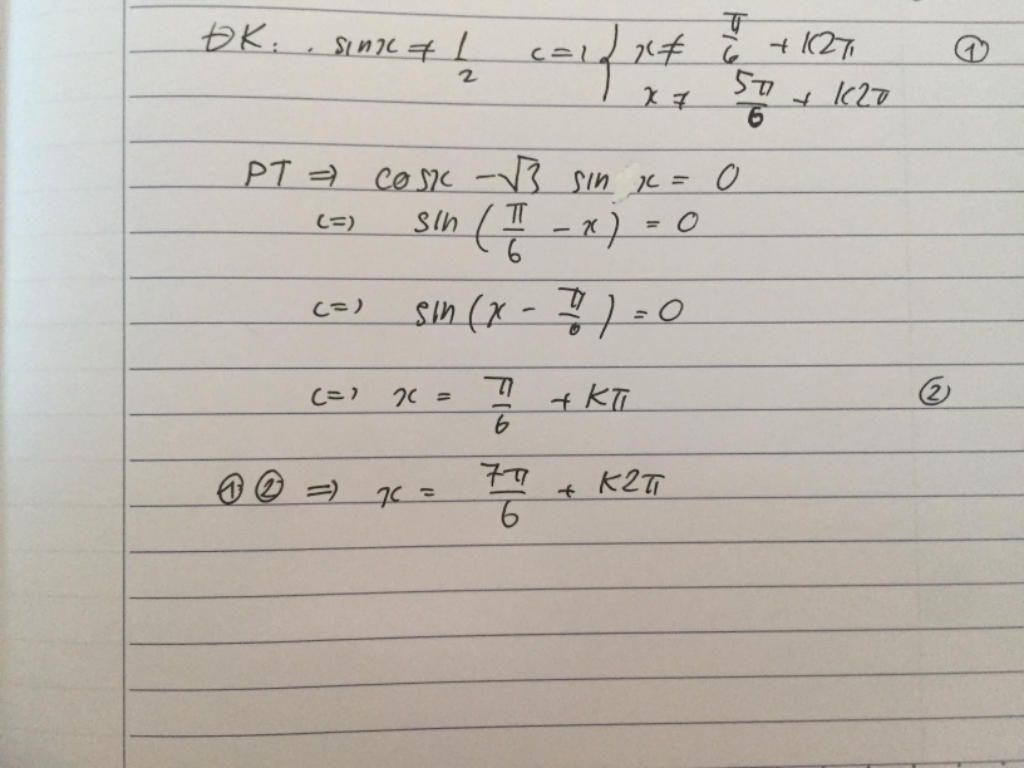 ĐK: . sinx ≠ 1/2 <=> { x ≠ π/6 + K2π ①
x ≠ 5π/6 + K2π
PT => cosx - √3 sin x = 0
<=> sin(π/6 - x) = 0
<=> sin(x - π/6) = 0
<=> x = π/6 + Kπ ②
① ② => x = 7π/6 + K2π